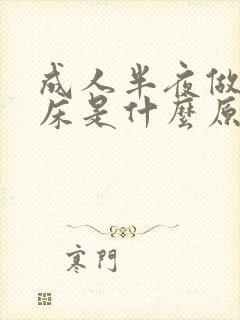 成人半夜做
床是什麼原
寒門